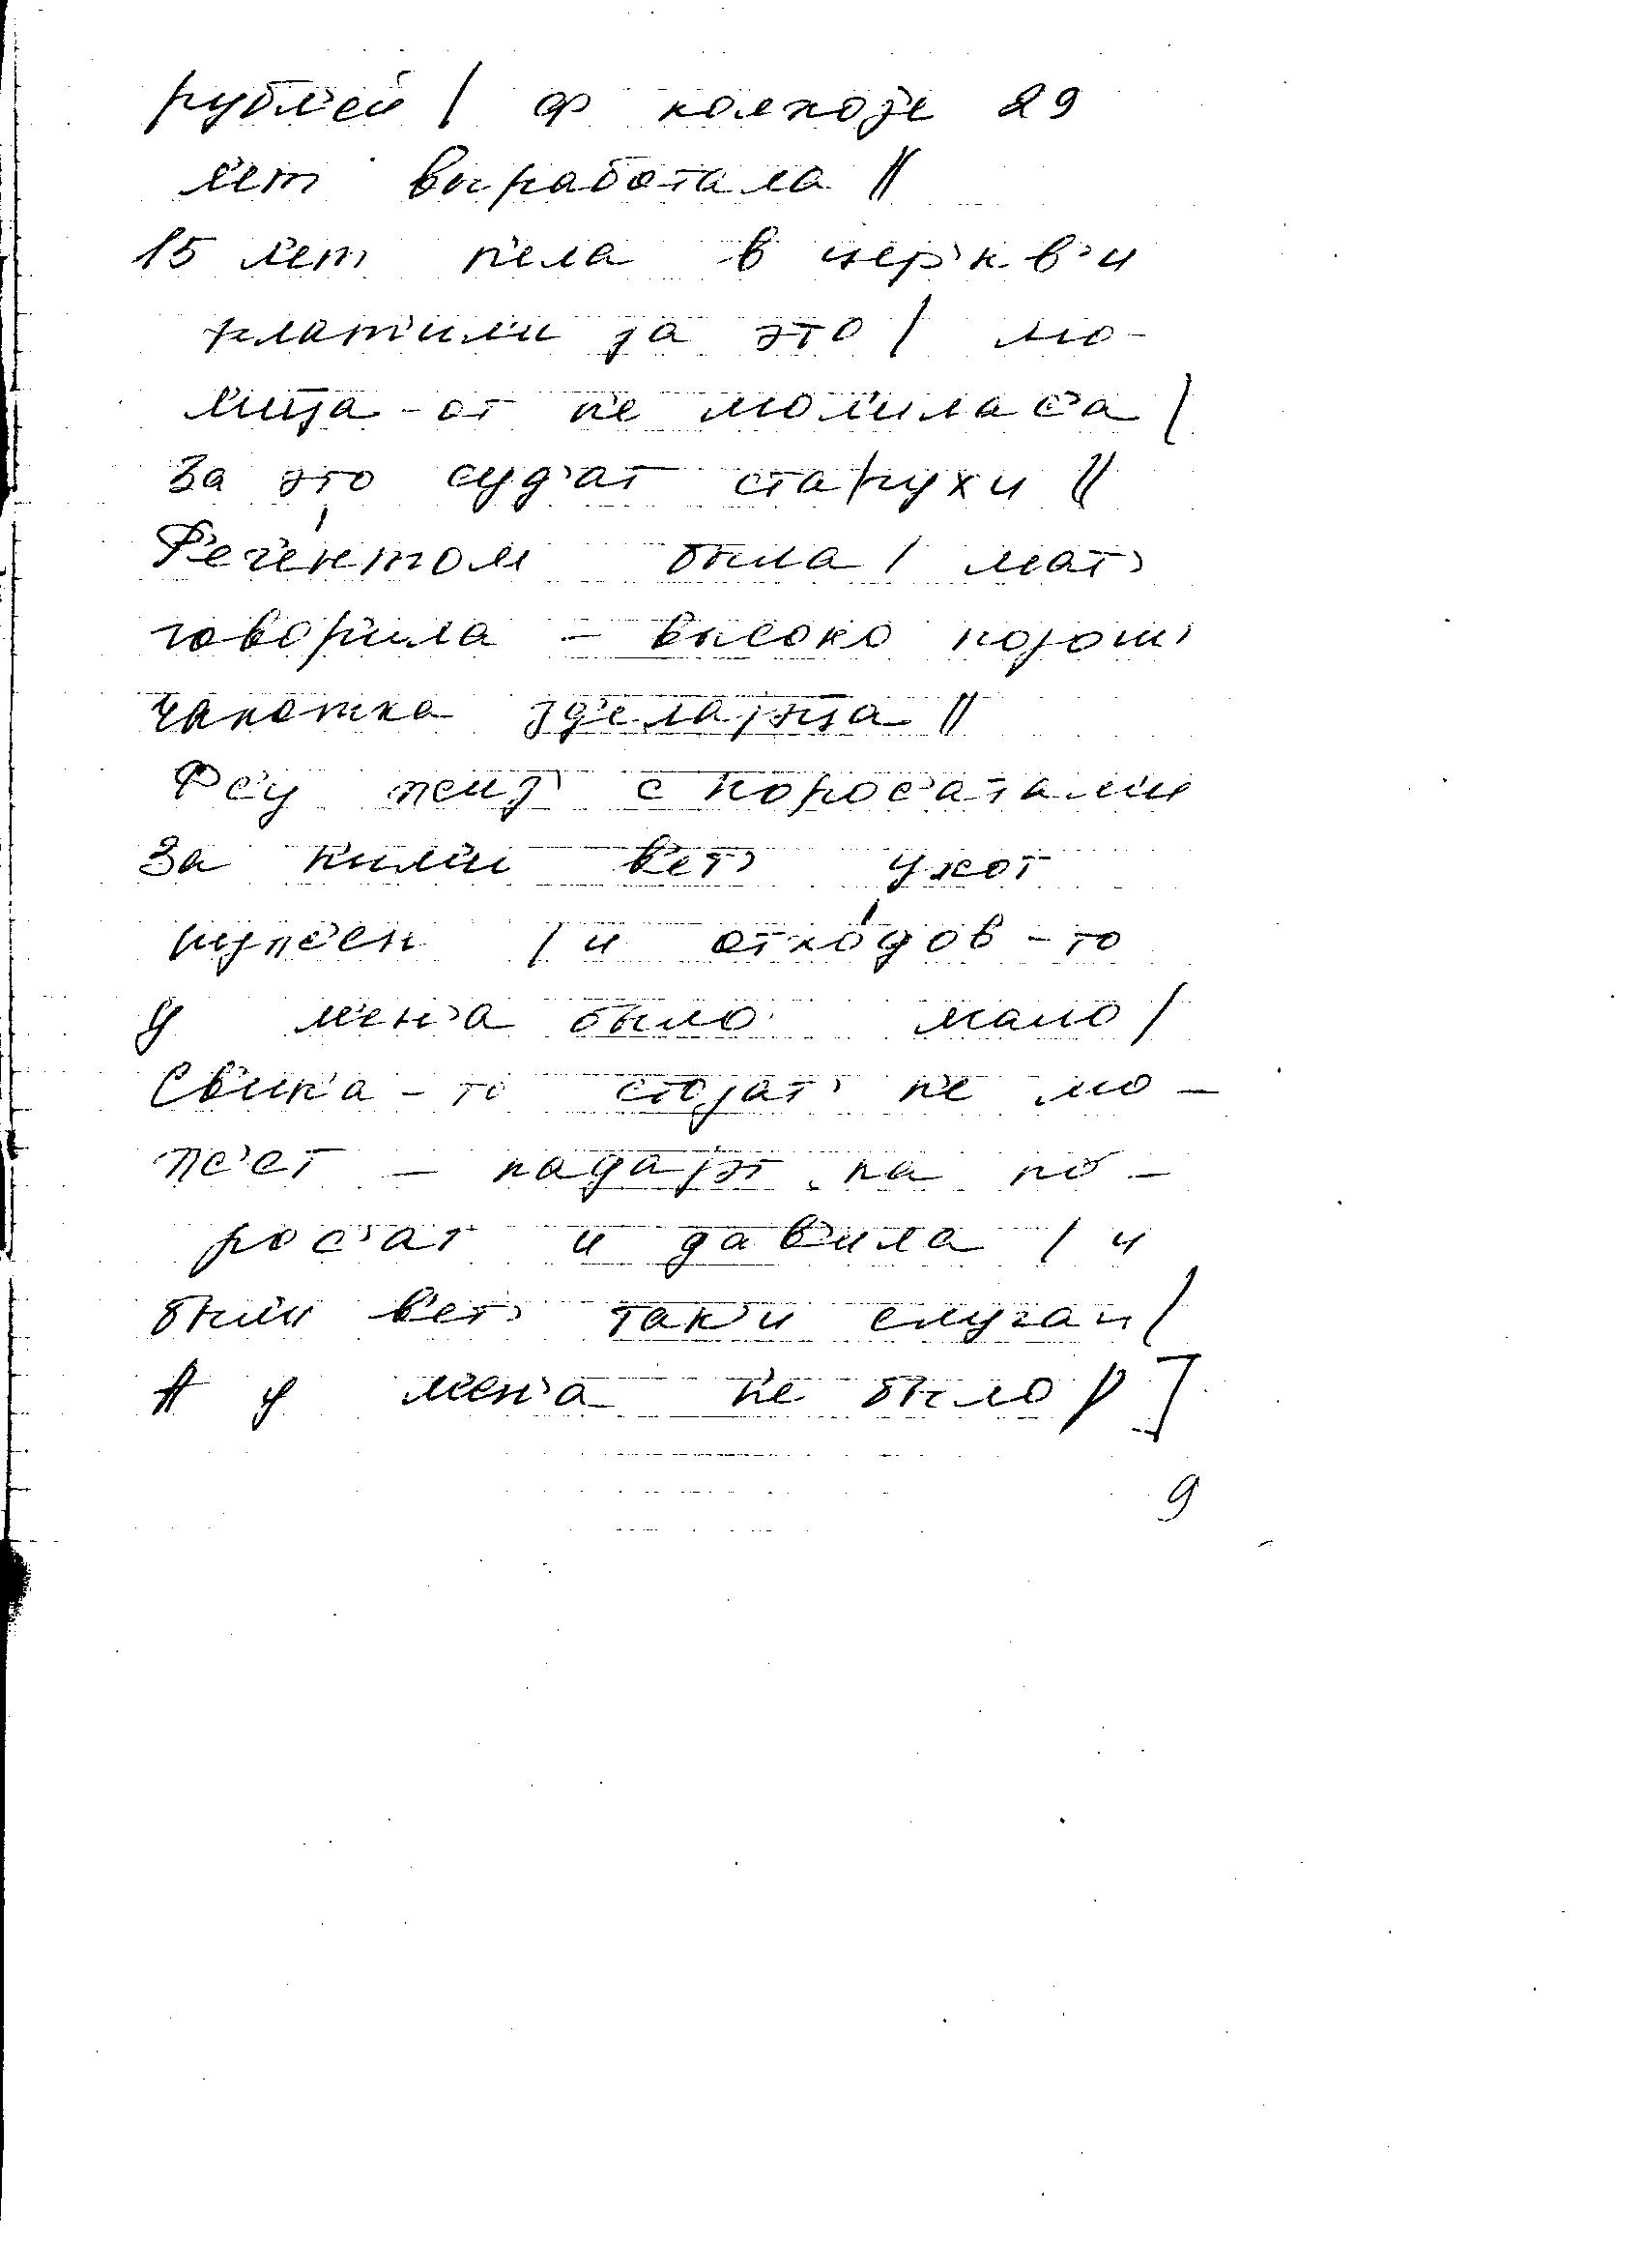 рубл'ей / ф колхоз'е 29
л'ет выработала //
15 л'ет п'ела в цер'кв'и
платил'и за это / мо-
л'ища-от н'е мол'илас'а /
За это суд'ат старухи //
Р'еге́нтом была / мат'
говор'ила – высоко
чахотка зд'елајэтца //
Фс'у жиз' с порос'атам'и
За н'им'и в'ет' ухот
нужо́н / и отхо́дов-то
У м'ен'а было мало /
Св'ин'а-то стојат' н'е мо-
жот – падајэт на по-
рос'ат и дав'ила / и
был'и в'ет' так'и случаи /
А у м'ен'а н'е было / ]
9